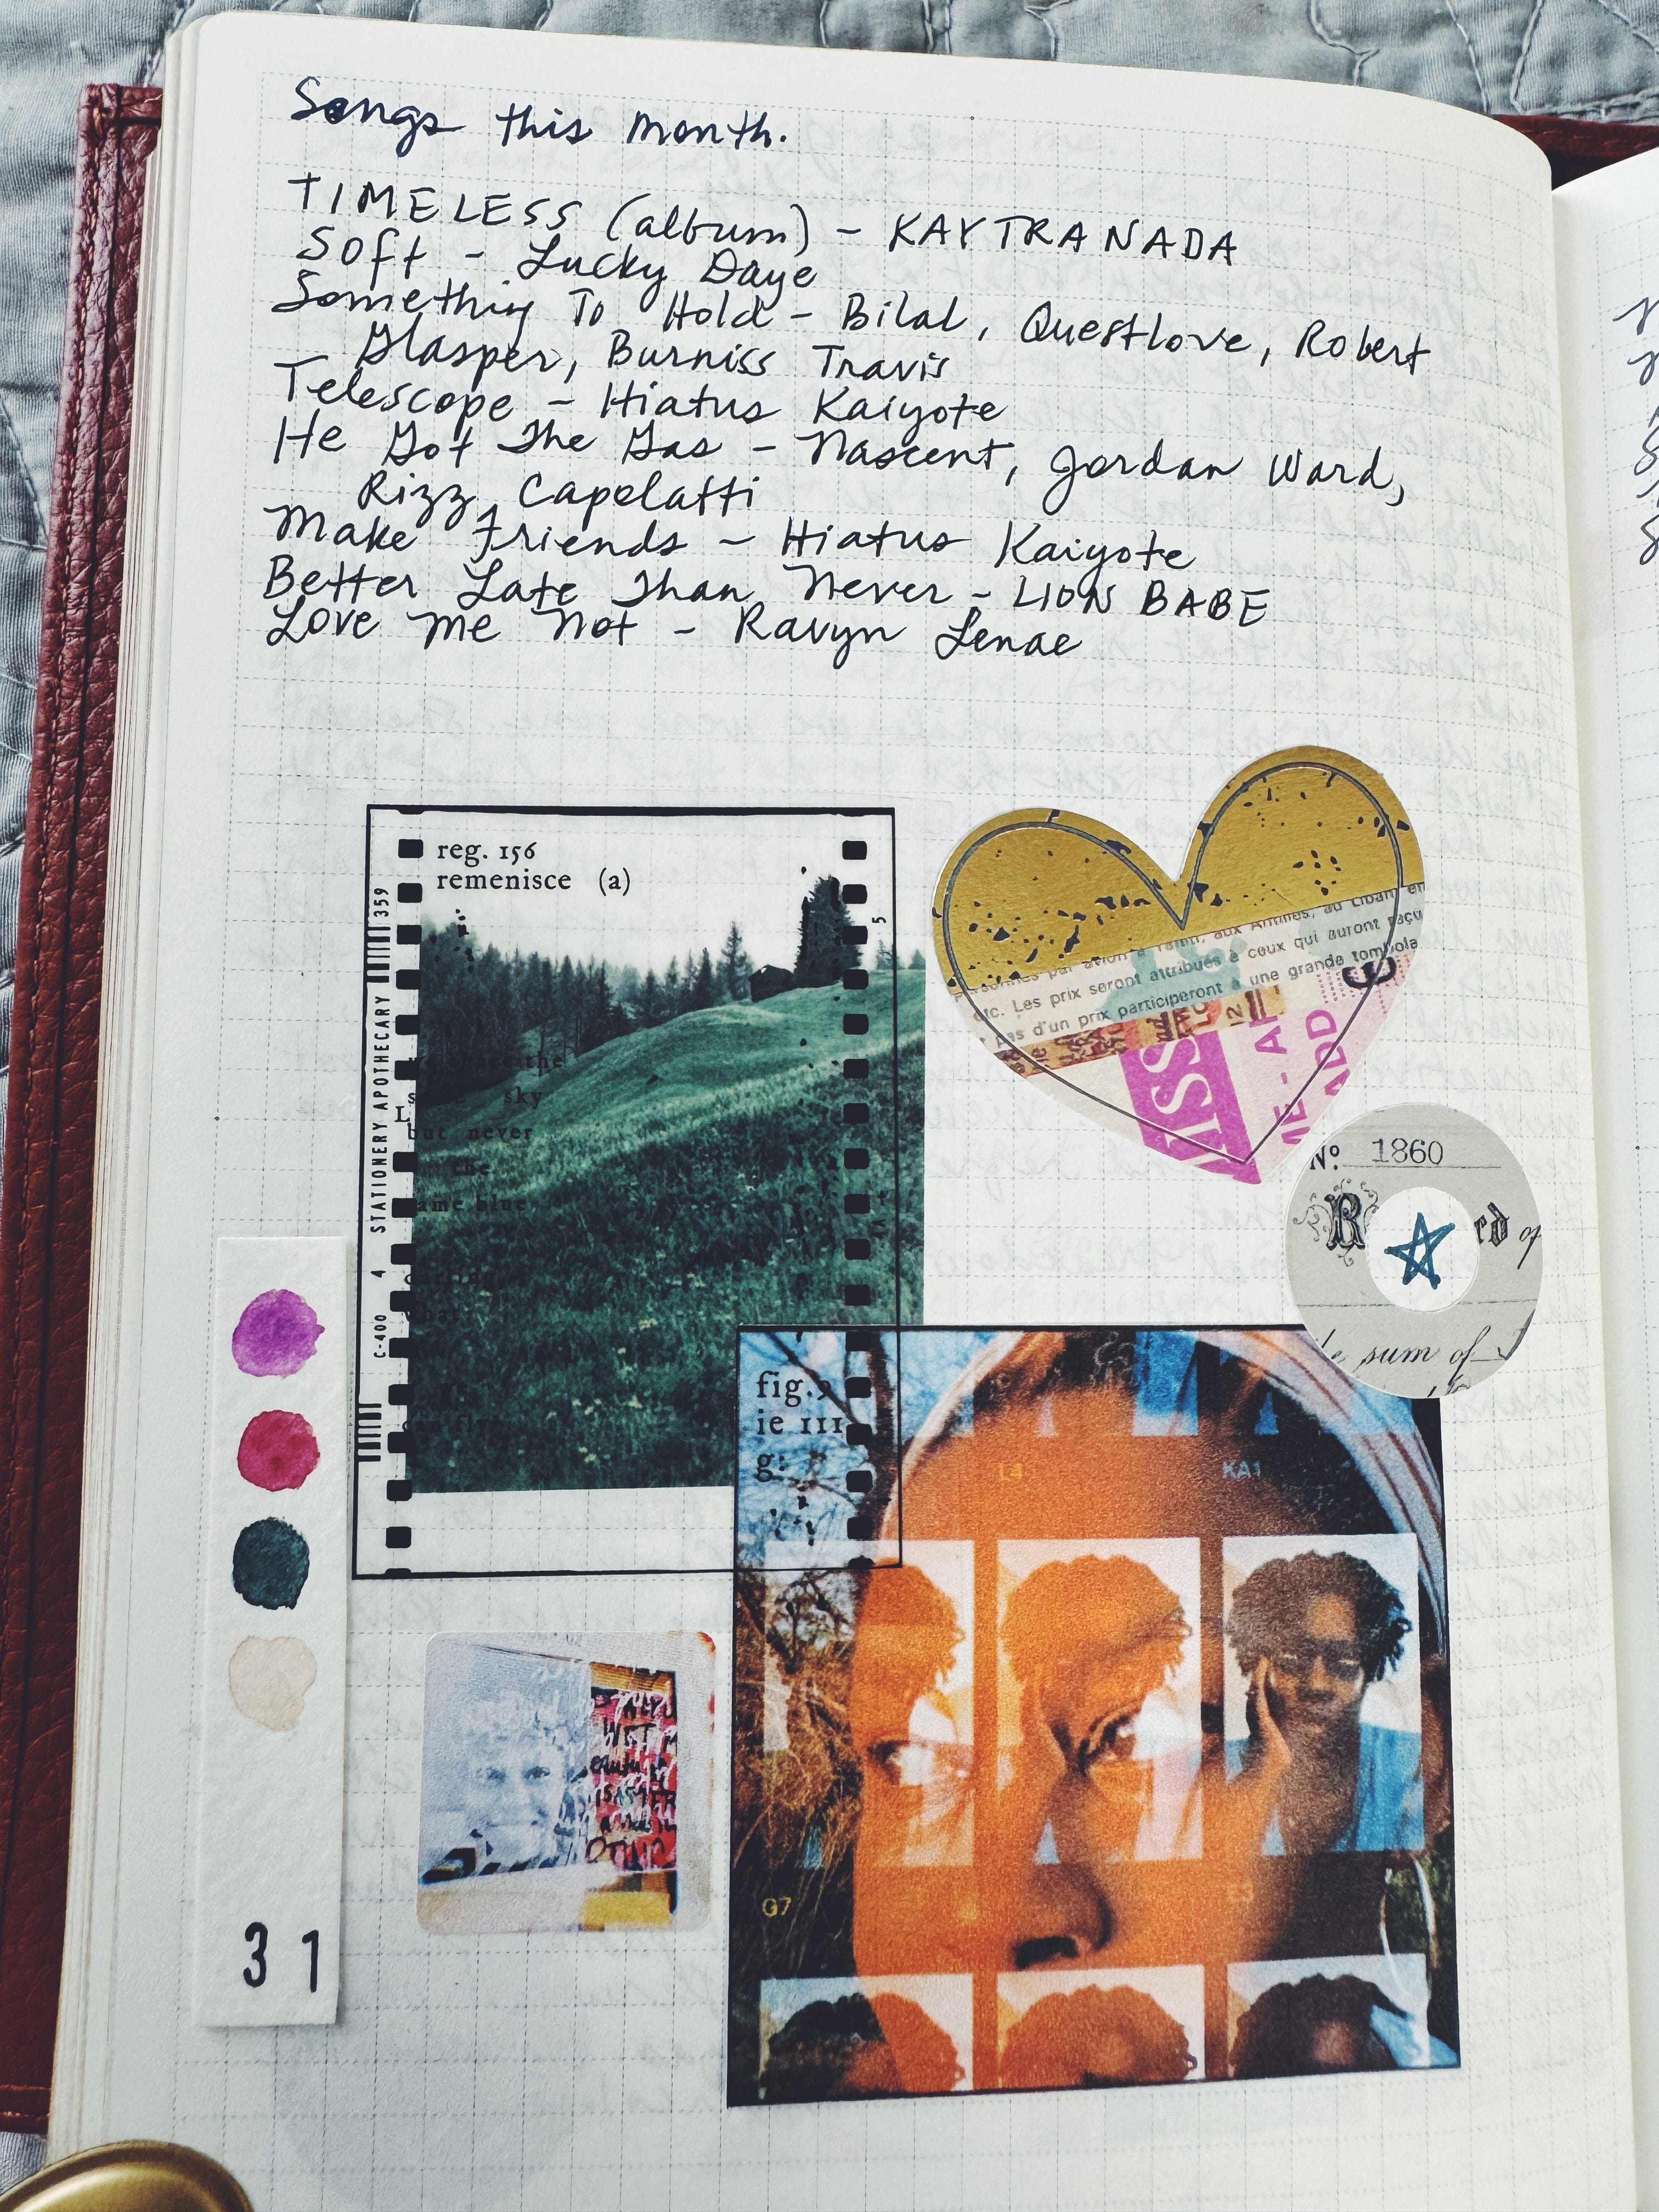 Songs this month.
TIMELESS (album) - KAYTRANADA
Soft - Lucky Daye
Something To Hold - Bilal, Questlove, Robert
Glasper, Burniss Travis
Telescope - Hiatus Kaiyote
He Got The Gas - Nascent, Jordan Ward,
Rizz Capolatti
Make Friends - Hiatus Kaiyote
Better Late Than Never - LION BABE
Love Me Not - Ravyn Lenae
reg. 156
remenisce (a)
359
STATIONERY APOTHECARY
4
C-400
5
the
sky
but never
the
ame blue
aux Antilles, au Liban, en
Personnes par avion à Tahiti,
etc. Les prix seront attribués à ceux qui auront reçu
pas d'un prix participeront à une grande tombola
ISS
Nº. 1860
R ed of
sum of
fig.
ie 111
g:
L4
KA1
G7
31